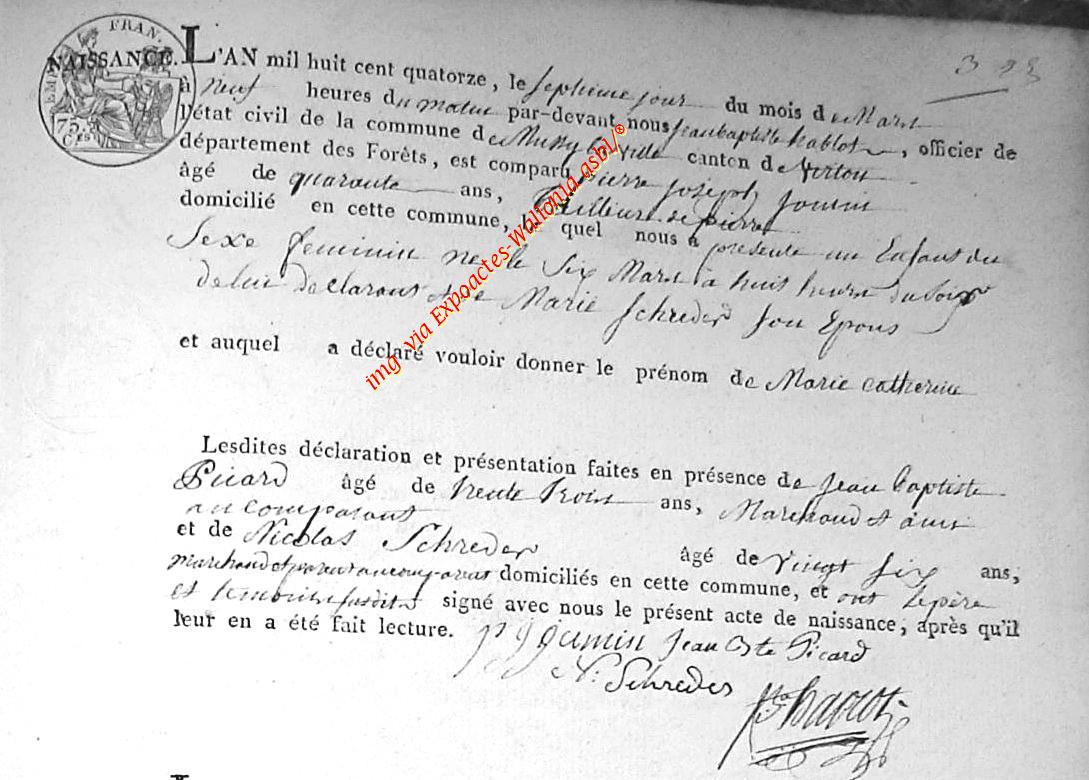 EMP. FRAN.
75. Ces
3
NAISSANCE. L'AN mil huit cent quatorze, le septieme jour du mois de Mars
à neuf heures du matin par-devant nous jean baptiste hablot, officier de
l'état civil de la commune de Mussy la ville canton de Virton
département des Forêts, est comparu Pierre Joseph Jomin
âgé de quarante ans, tailleur de pierre
domicilié en cette commune, le quel nous a présenté un Enfant du
Sexe feminin né le Six Mars à huit heures du Soir
de lui declarant et de Marie Schreder Son Epous
et auquel a déclaré vouloir donner le prénom de Marie Catherine
Lesdites déclaration et présentation faites en présence de jean baptiste
Picard âgé de trente trois ans, Marchand et ami
au comparant
et de Nicolas Schreder âgé de vingt six ans,
marchand et parent au comparant domiciliés en cette commune, et ont le père
et temoins susdits signé avec nous le présent acte de naissance, après qu'il
leur en a été fait lecture.
p j jumin jean Bte Picard
N. Schreder
hablot
img via Expoactes-Wallonia asbl/®